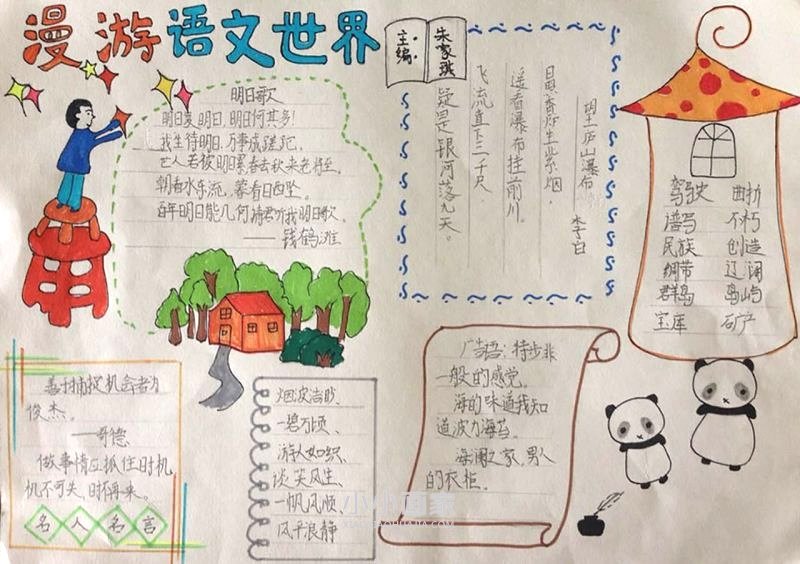 漫游语文世界
主编:
朱家琪
明日歌
明日复明日,明日何其多!
我生待明日,万事成蹉跎。
世人若被明日累春去秋来老将至。
朝看水东流,暮看日西坠。
百年明日能几何请君听我明日歌。
——钱鹤滩
望庐山瀑布
李白
日照香炉生紫烟,
遥看瀑布挂前川。
飞流直下三千尺,
疑是银河落九天。
驾驶 曲折
谱写 不朽
民族 创造
绷带 辽阔
群岛 岛屿
宝库 矿产
善于捕捉机会者为
俊杰。
——歌德
做事情应抓住时机
机不可失,时不再来。
名人名言
烟波浩瀚、
一碧万顷、
游人如织、
谈笑风生、
一帆风顺、
风平浪静
广告语:特步非
一般的感觉。
海的味道我知
道波力海苔。
海澜之家,男人
的衣柜。
小小画家
XIAOXIAOHUAJIA.COM